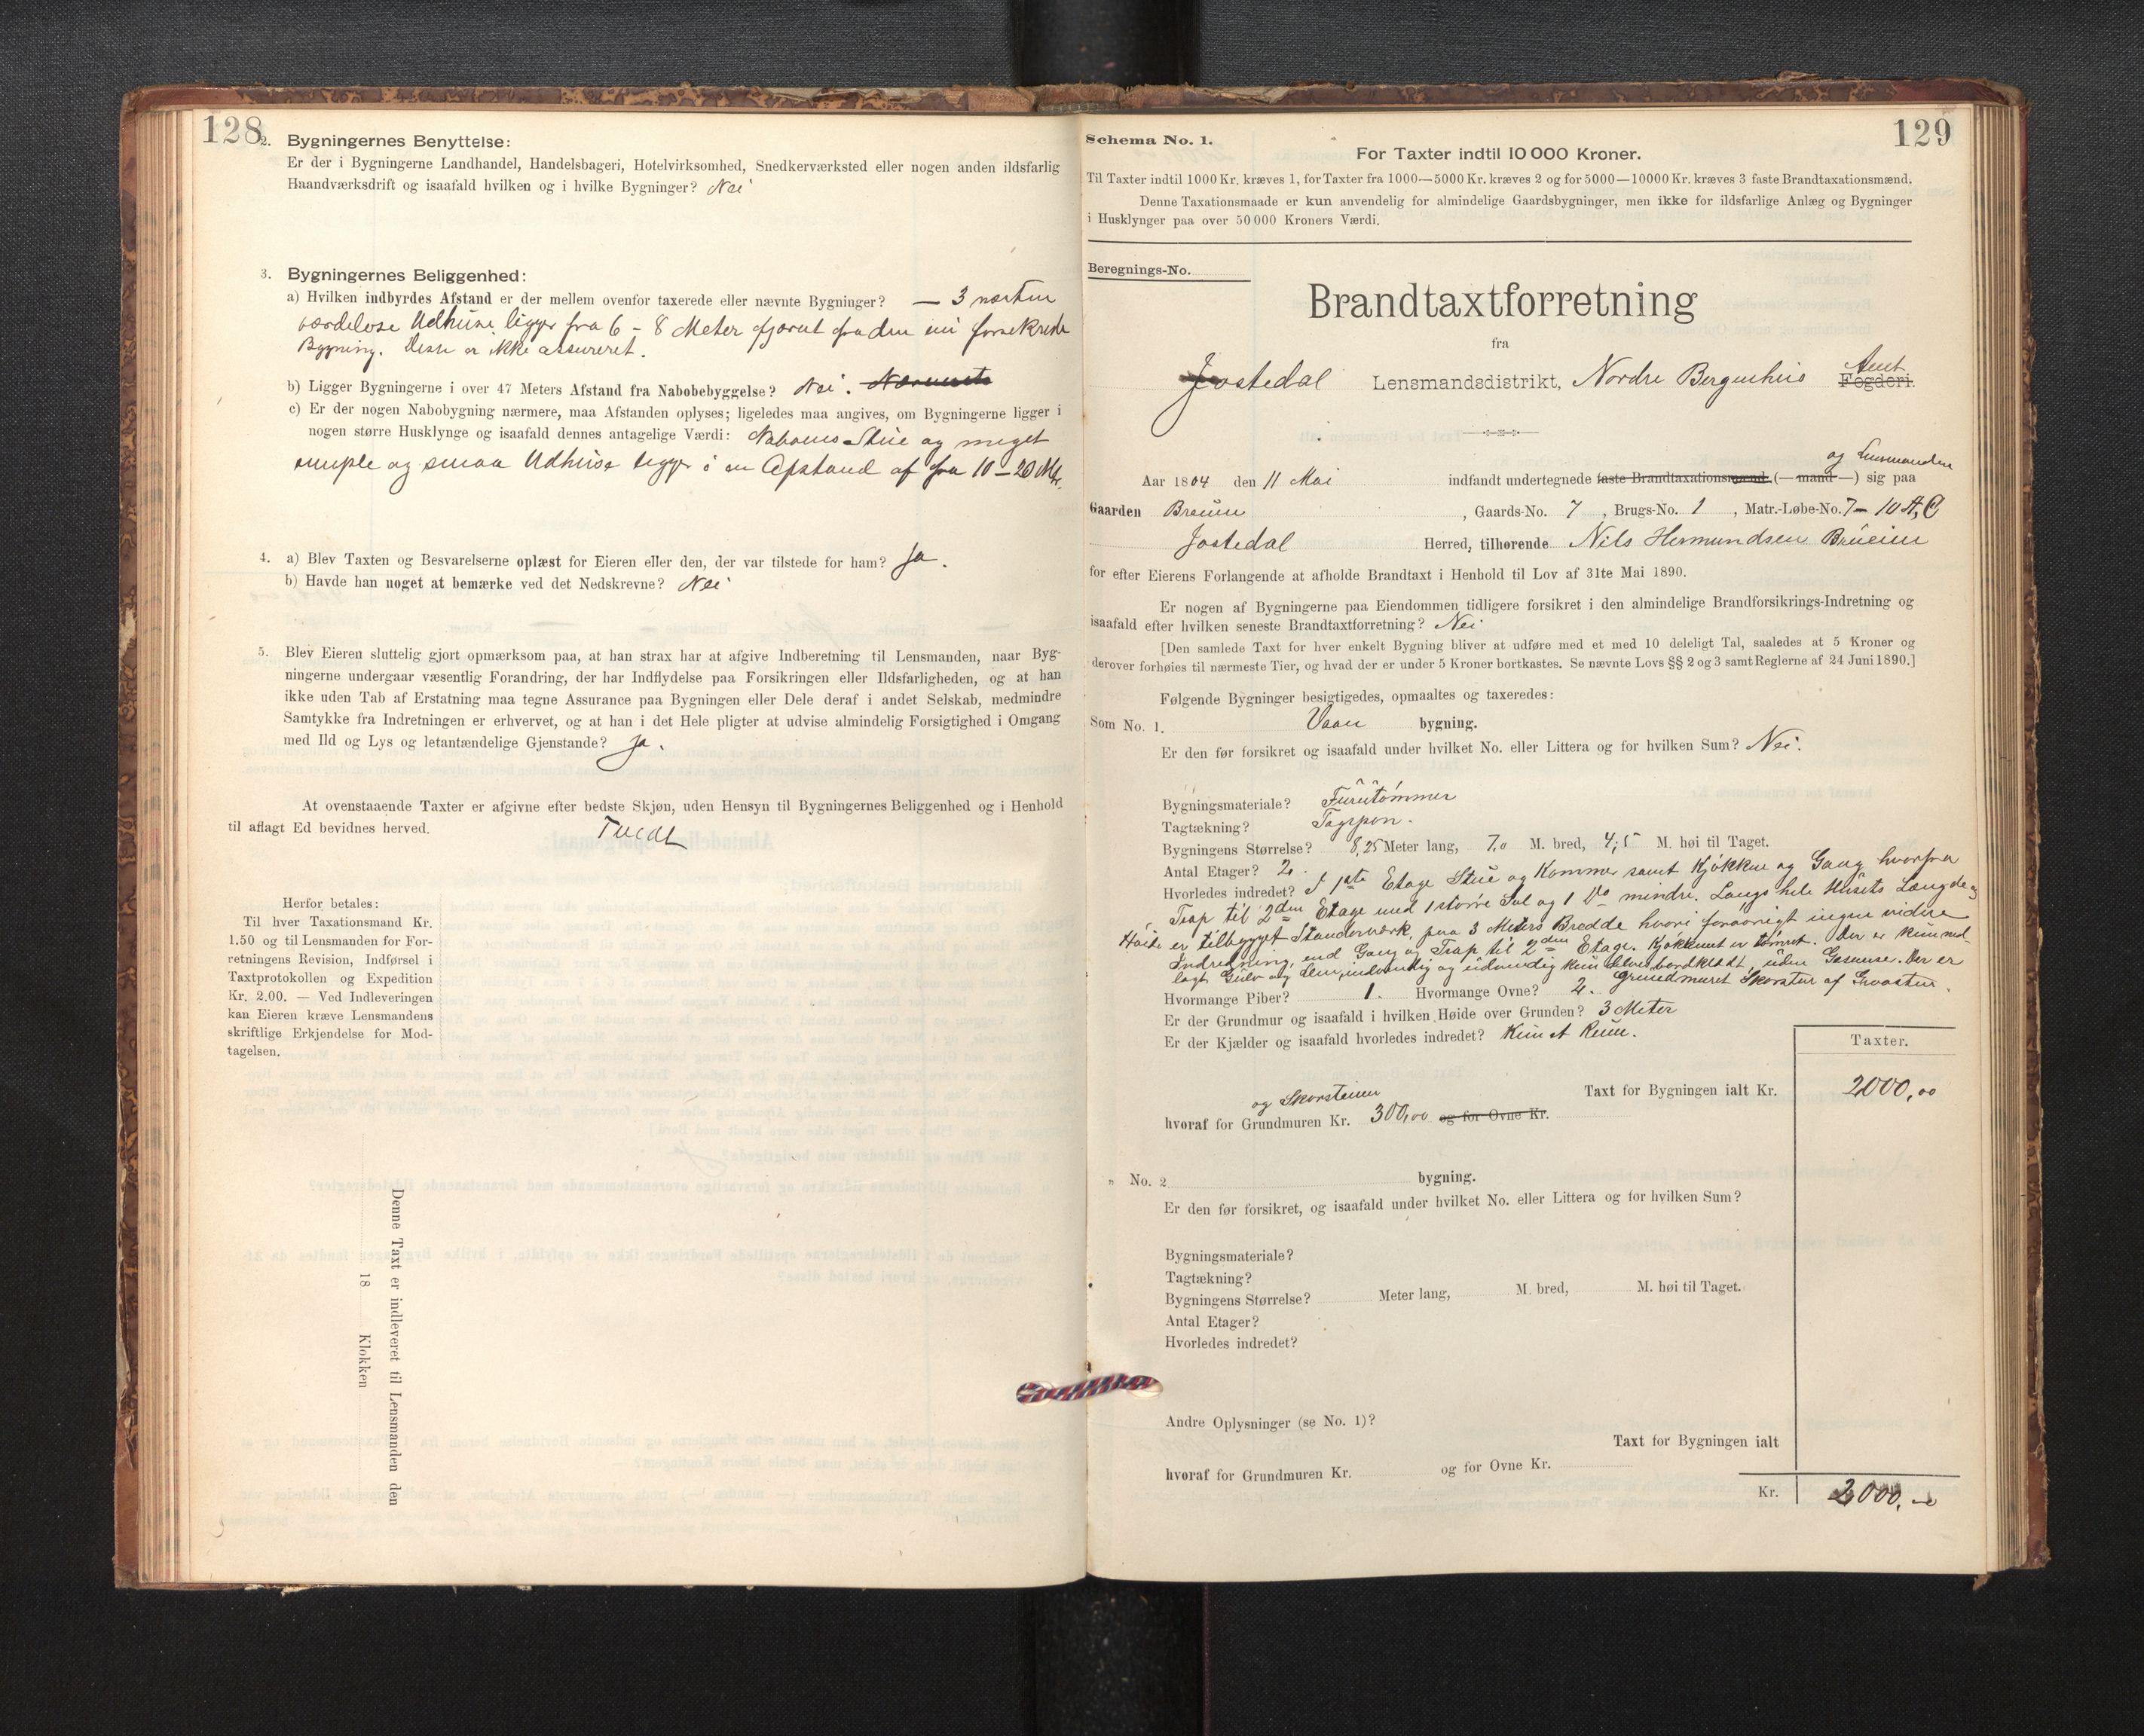 128
2. Bygningernes Benyttelse:
Er der i Bygningerne Landhandel, Handelsbageri, Hotelvirksomhed, Snedkerværksted eller nogen anden ildsfarlig
Haandværksdrift og isaafald hvilken og i hvilke Bygninger? Nei
3. Bygningernes Beliggenhed:
a) Hvilken indbyrdes Afstand er der mellem ovenfor taxerede eller nævnte Bygninger? — 3 næsten
værdeløse Udhuse ligger fra 6 - 8 Meter fjernt fra den nu forsikrede
Bygning. Disse er ikke assureret.
b) Ligger Bygningerne i over 47 Meters Afstand fra Nabobebyggelse? Nei.
c) Er der nogen Nabobygning nærmere, maa Afstanden oplyses; ligeledes maa angives, om Bygningerne ligger i
nogen større Husklynge og isaafald dennes antagelige Værdi: Naboens Stue og meget
simple og smaa Udhuse ligger i en Afstand af fra 10-20 Mtr.
4. a) Blev Taxten og Besvarelserne oplæst for Eieren eller den, der var tilstede for ham? Ja.
b) Havde han noget at bemærke ved det Nedskrevne? Nei
5. Blev Eieren sluttelig gjort opmærksom paa, at han strax har at afgive Indberetning til Lensmanden, naar Byg-
ningerne undergaar væsentlig Forandring, der har Indflydelse paa Forsikringen eller Ildsfarligheden, og at han
ikke uden Tab af Erstatning maa tegne Assurance paa Bygningen eller Dele deraf i andet Selskab, medmindre
Samtykke fra Indretningen er erhvervet, og at han i det Hele pligter at udvise almindelig Forsigtighed i Omgang
med Ild og Lys og letantændelige Gjenstande? Ja.
At ovenstaaende Taxter er afgivne efter bedste Skjøn, uden Hensyn til Bygningernes Beliggenhed og i Henhold
til aflagt Ed bevidnes herved.
Herfor betales:
Til hver Taxationsmand Kr.
1.50 og til Lensmanden for For-
retningens Revision, Indførsel i
Taxtprotokollen og Expedition
Kr. 2.00. — Ved Indleveringen
kan Eieren kræve Lensmandens
skriftlige Erkjendelse for Mod-
tagelsen.
Denne Taxt er indleveret til Lensmanden den
18 Klokken
129
Schema No. 1.
For Taxter indtil 10 000 Kroner.
Til Taxter indtil 1000 Kr. kræves 1, for Taxter fra 1000—5000 Kr. kræves 2 og for 5000—10000 Kr. kræves 3 faste Brandtaxationsmænd.
Denne Taxationsmaade er kun anvendelig for almindelige Gaardsbygninger, men ikke for ildsfarlige Anlæg og Bygninger
i Husklynger paa over 50 000 Kroners Værdi.
Beregnings-No.
Brandtaxtforretning
fra
Jostedal Lensmandsdistrikt, Nordre Bergenhus Amt Fogderi.
og Lensmanden
Aar 1804 den 11 Mai indfandt undertegnede faste Brandtaxationsmænd (— mand —) sig paa
Gaarden Breium, Gaards-No. 7, Brugs-No. 1, Matr.-Løbe-No. 7- 10 A, C
Jostedal Herred, tilhørende Nils Hermundsen Brueim
for efter Eierens Forlangende at afholde Brandtaxt i Henhold til Lov af 31te Mai 1890.
Er nogen af Bygningerne paa Eiendommen tidligere forsikret i den almindelige Brandforsikrings-Indretning og
isaafald efter hvilken seneste Brandtaxtforretning? Nei
[Den samlede Taxt for hver enkelt Bygning bliver at udføre med et med 10 deleligt Tal, saaledes at 5 Kroner og
derover forhøies til nærmeste Tier, og hvad der er under 5 Kroner bortkastes. Se nævnte Lovs §§ 2 og 3 samt Reglerne af 24 Juni 1890.]
Følgende Bygninger besigtigedes, opmaaltes og taxeredes:
Som No. 1. Vaan bygning.
Er den før forsikret og isaafald under hvilket No. eller Littera og for hvilken Sum? Nei.
Bygningsmateriale? Furutømmer
Tagtækning? Tagspon.
Bygningens Størrelse? 8,25 Meter lang, 7,0 M. bred, 4,5 M. høi til Taget.
Antal Etager? 2.
Hvorledes indredet? I 1ste Etage Stue og Kammer samt Kjøkken og Gang hvorfra
Trap til 2den Etage med 1 større Sal og 1 Do mindre. Langs hele Husets Længde og
Høide er tilbygget Standerværk, paa 3 Meters Bredde hvori forøvrigt ingen videre
Indredning, end Gang og Trap til 2den Etage. Kjøkkenet er tømret. Der er kun ned-
lagt Gulv og dem, indvendig og udvendig kun delvis bordklædt, uden Gesimse. Der er
grundmuret Skorsten af
Hvormange Piber? 1. Hvormange Ovne? 2.
Er der Grundmur og isaafald i hvilken Høide over Grunden? 3 Meter
Er der Kjælder og isaafald hvorledes indredet? Kun et Rum.
Taxter.
Taxt for Bygningen ialt Kr. 2000,00
og Skorstenen
hvoraf for Grundmuren Kr. 300,00 og for Ovne Kr.
„ No. 2 bygning.
Er den før forsikret, og isaafald under hvilket No. eller Littera og for hvilken Sum?
Bygningsmateriale?
Tagtækning?
Bygningens Størrelse? Meter lang, M. bred, M. høi til Taget.
Antal Etager?
Hvorledes indredet?
Andre Oplysninger (se No. 1)?
Taxt for Bygningen ialt
hvoraf for Grundmuren Kr. og for Ovne Kr.
Kr. 2000,-